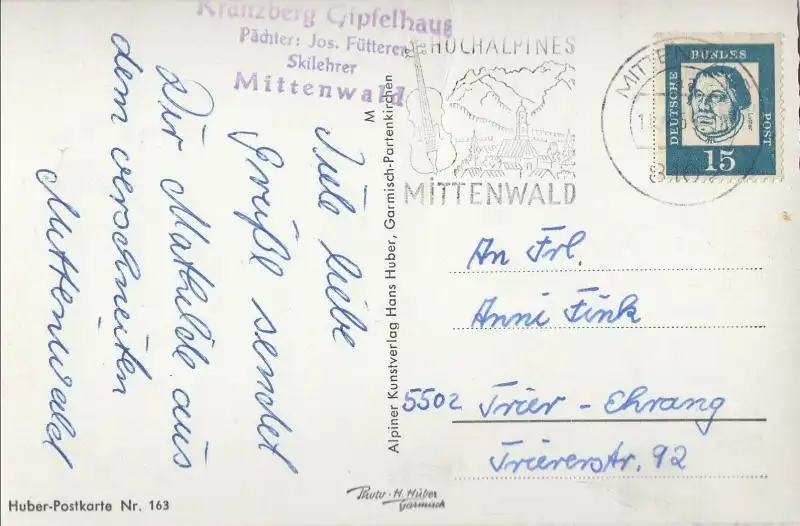 Kranzberg Gipfelhaus
Pächter: Jos. Fütterer
Skilehrer
Mittenwald
HOCHALPINES
MITTENWALD
MITTEN
DEUTSCHE
BUNDES
POST
Luther
15
Viele liebe
Grüße sendet
Dir Mathilde aus
dem verschneiten
Mittenwald
M
Alpiner Kunstverlag Hans Huber, Garmisch-Partenkirchen
An Frl.
Anni Fink
5502 Trier - Ehrang
Triererstr. 92
Huber-Postkarte Nr. 163
Photo-H. Huber
Garmisch